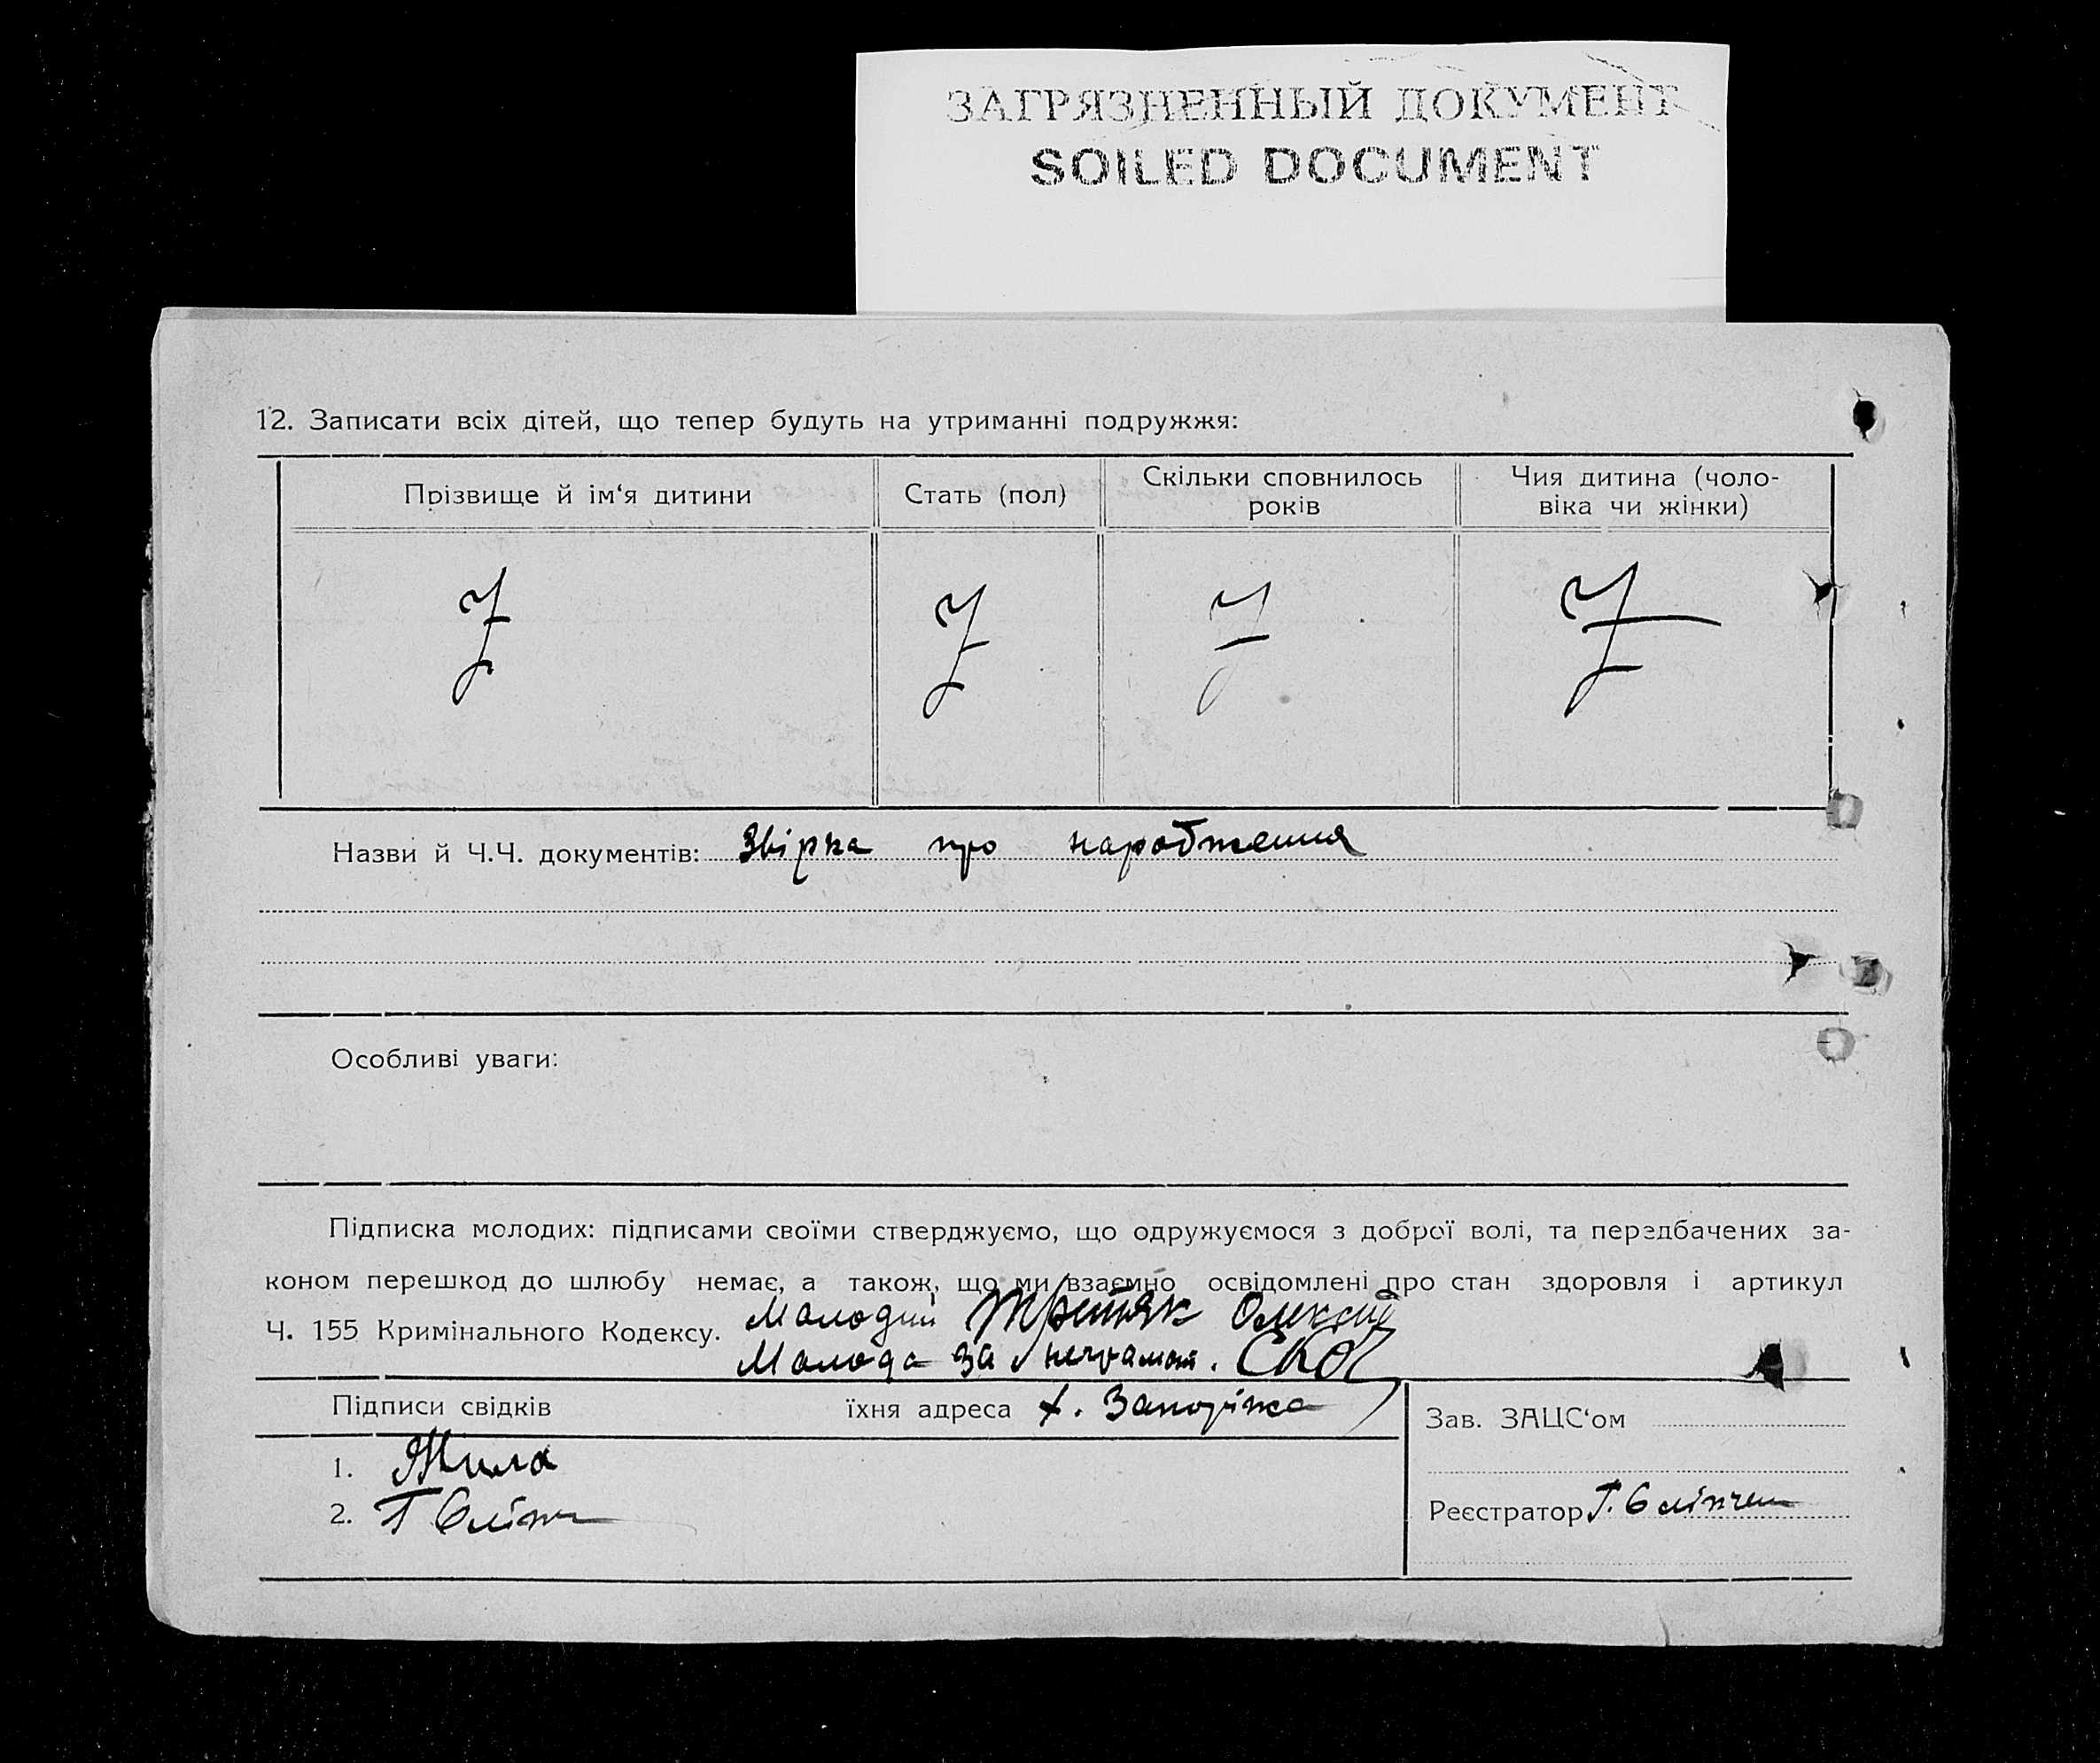 ЗАГРЯЗНЕННЫЙ ДОКУМЕНТ
SOILED DOCUMENT
12. Записати всіх дітей, що тепер будуть на утриманні подружжя:
Прізвище й ім‘я дитини
Стать (пол)
Скільки сповнилось
років
Чия дитина (чоло-
віка чи жінки)
Назви й Ч.Ч. документів: Звірка про народження
Особливі уваги:
Підписка молодих: підписами своїми стверджуємо, що одружуємося з доброї волі, та передбачених за-
коном перешкод до шлюбу немає, а також, що ми взаємно освідомлені про стан здоровля і артикул
Ч. 155 Кримінального Кодексу. Молодий Третяк Олексій
Молода за неграмот.
Підписи свідків
їхня адреса х. Запоріжа
Зав. ЗАЦС‘ом
1.
2. Г
Реєстратор Г.